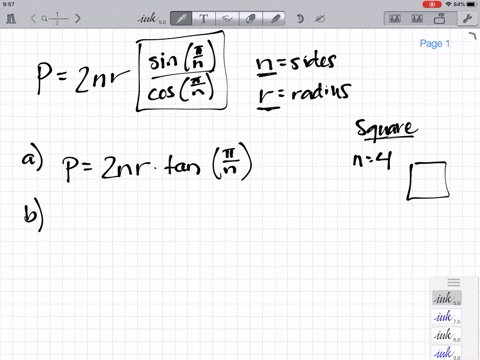 9:57
84%
1/2
ink 5.0
Page 1
P = 2nr sin(π/n)/cos(π/n)
n = sides
r = radius
Square
n = 4
a) P = 2nr · tan (π/n)
b)
ink 5.0
ink 7.5
ink 6.0
ink 3.0